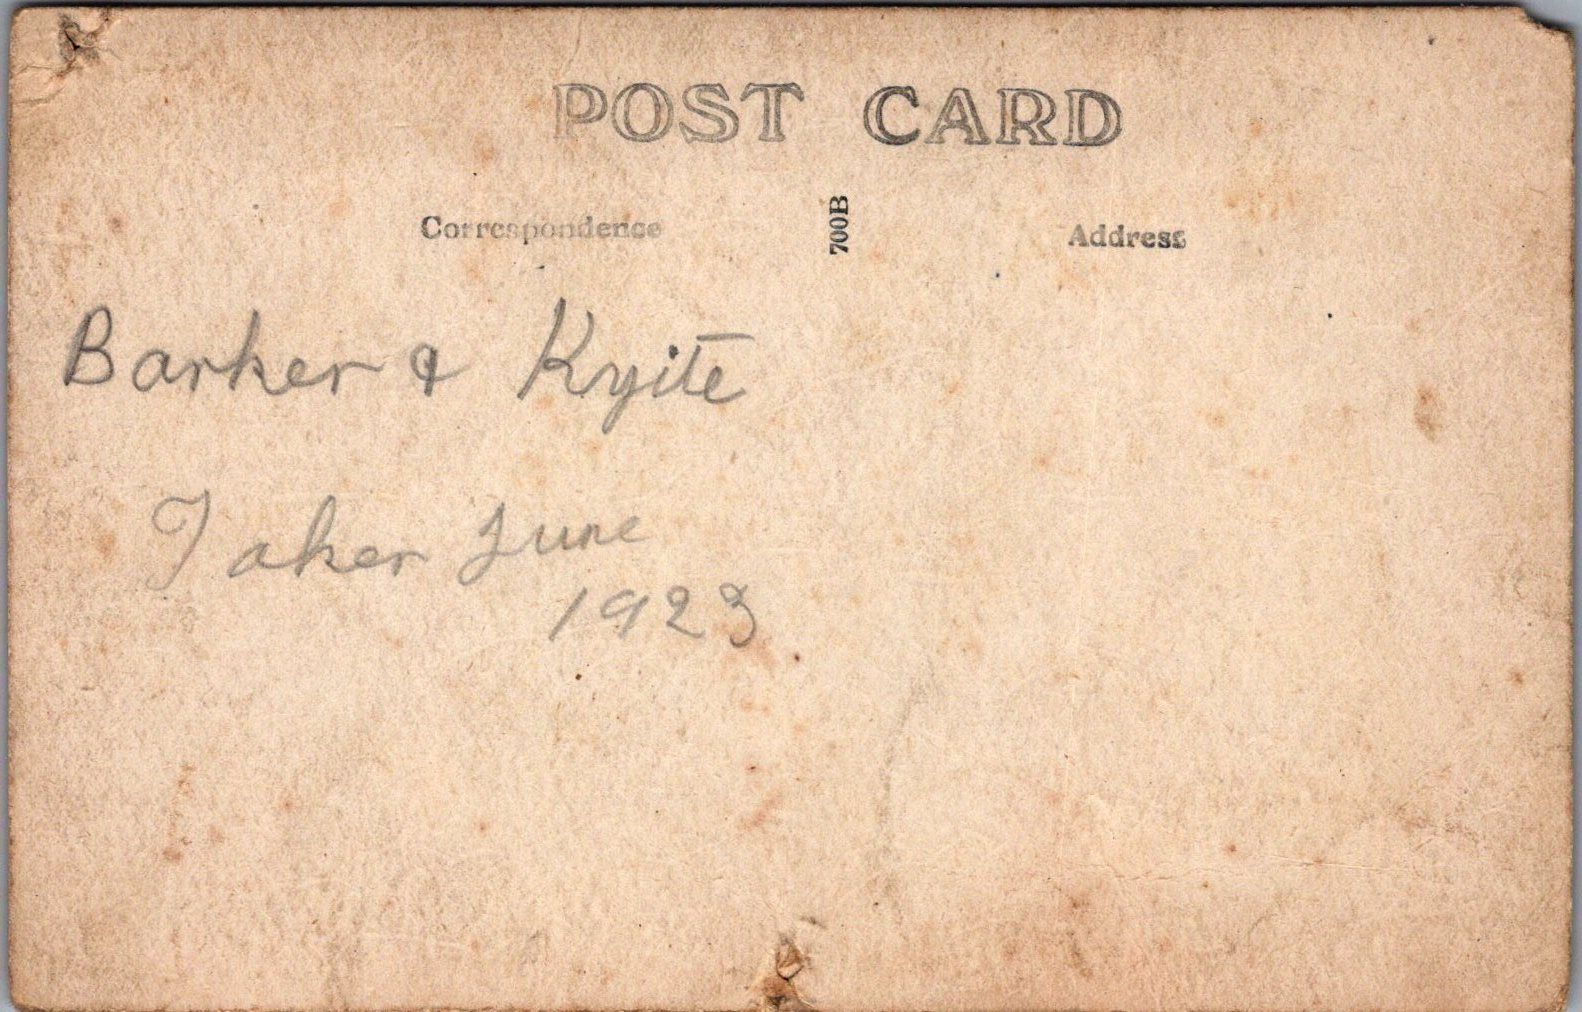 POST CARD
Correspondence
700B
Address
Barker & Kyite
Taken June
1923